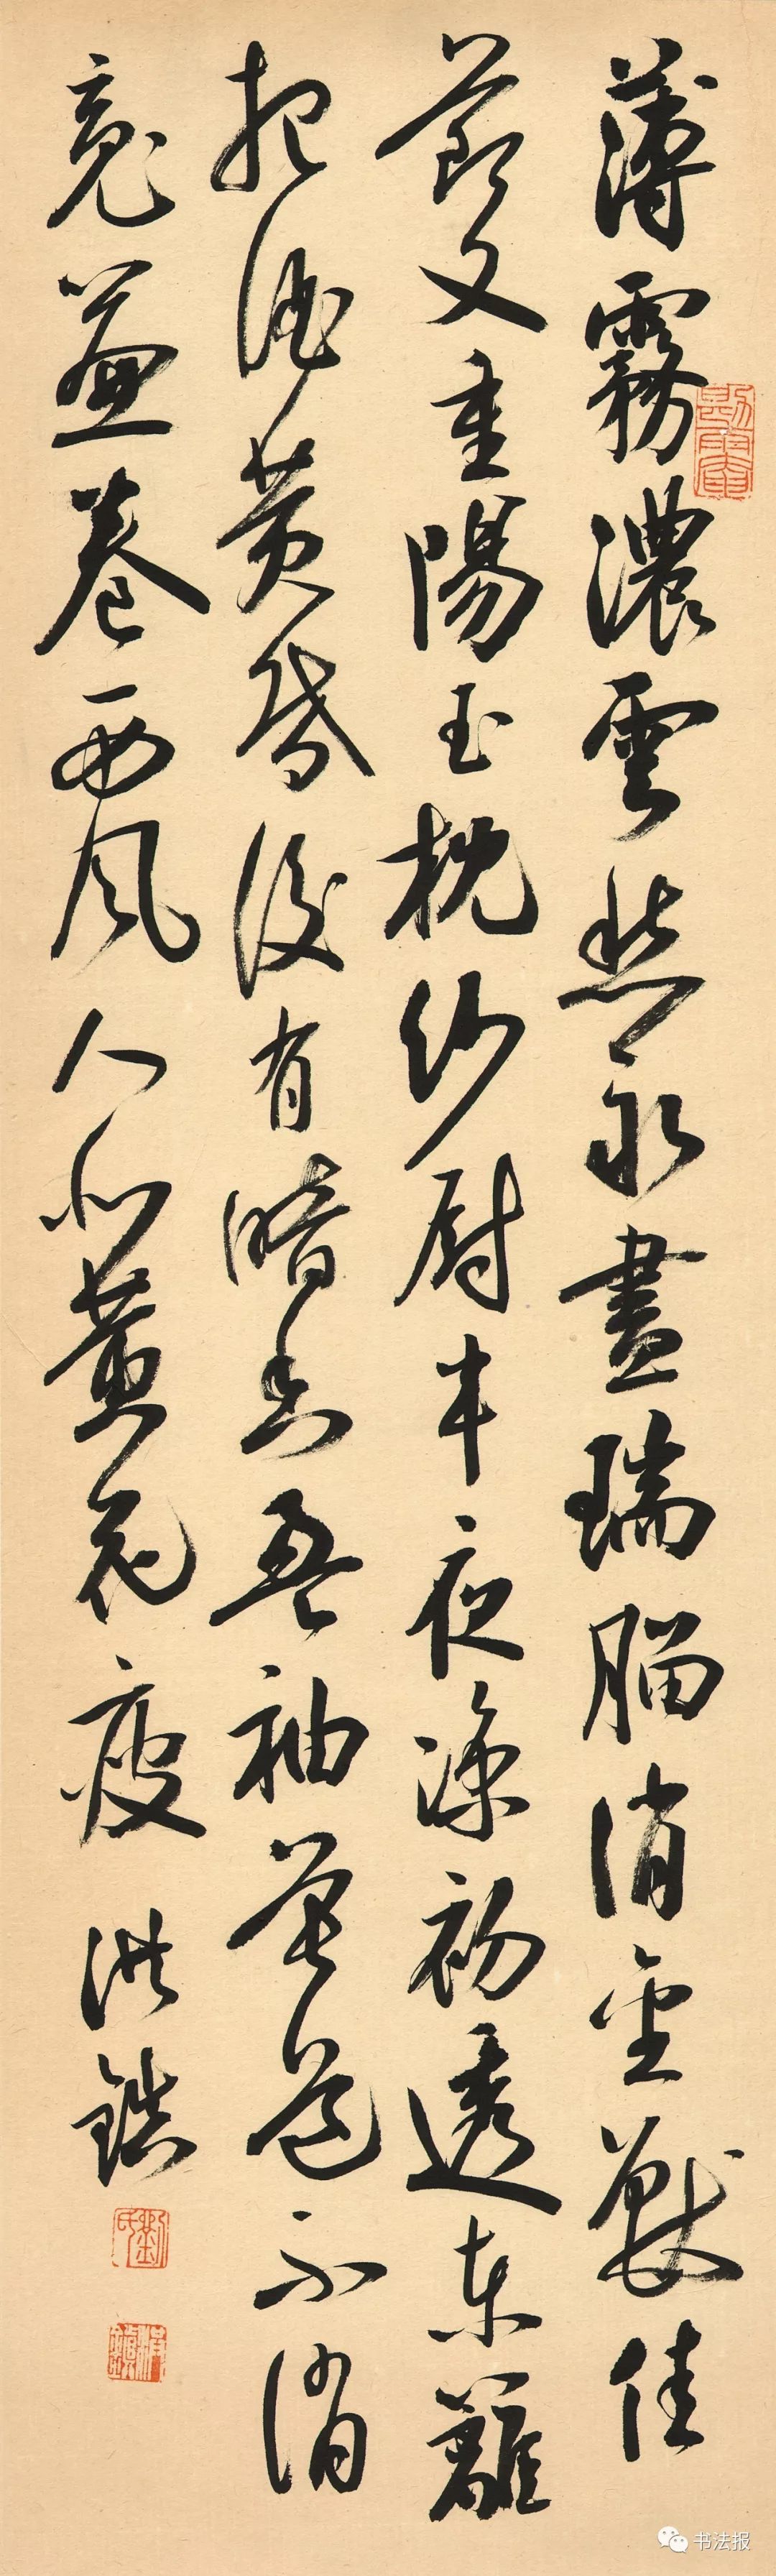 薄霧濃雲愁永晝瑞腦消金獸佳
節又重陽玉枕紗廚半夜涼初透東籬
把酒黃昏後有暗香盈袖莫道不消
魂簾卷西風人似黃花瘦 洪鎮
劉氏
洪鎮
书法报